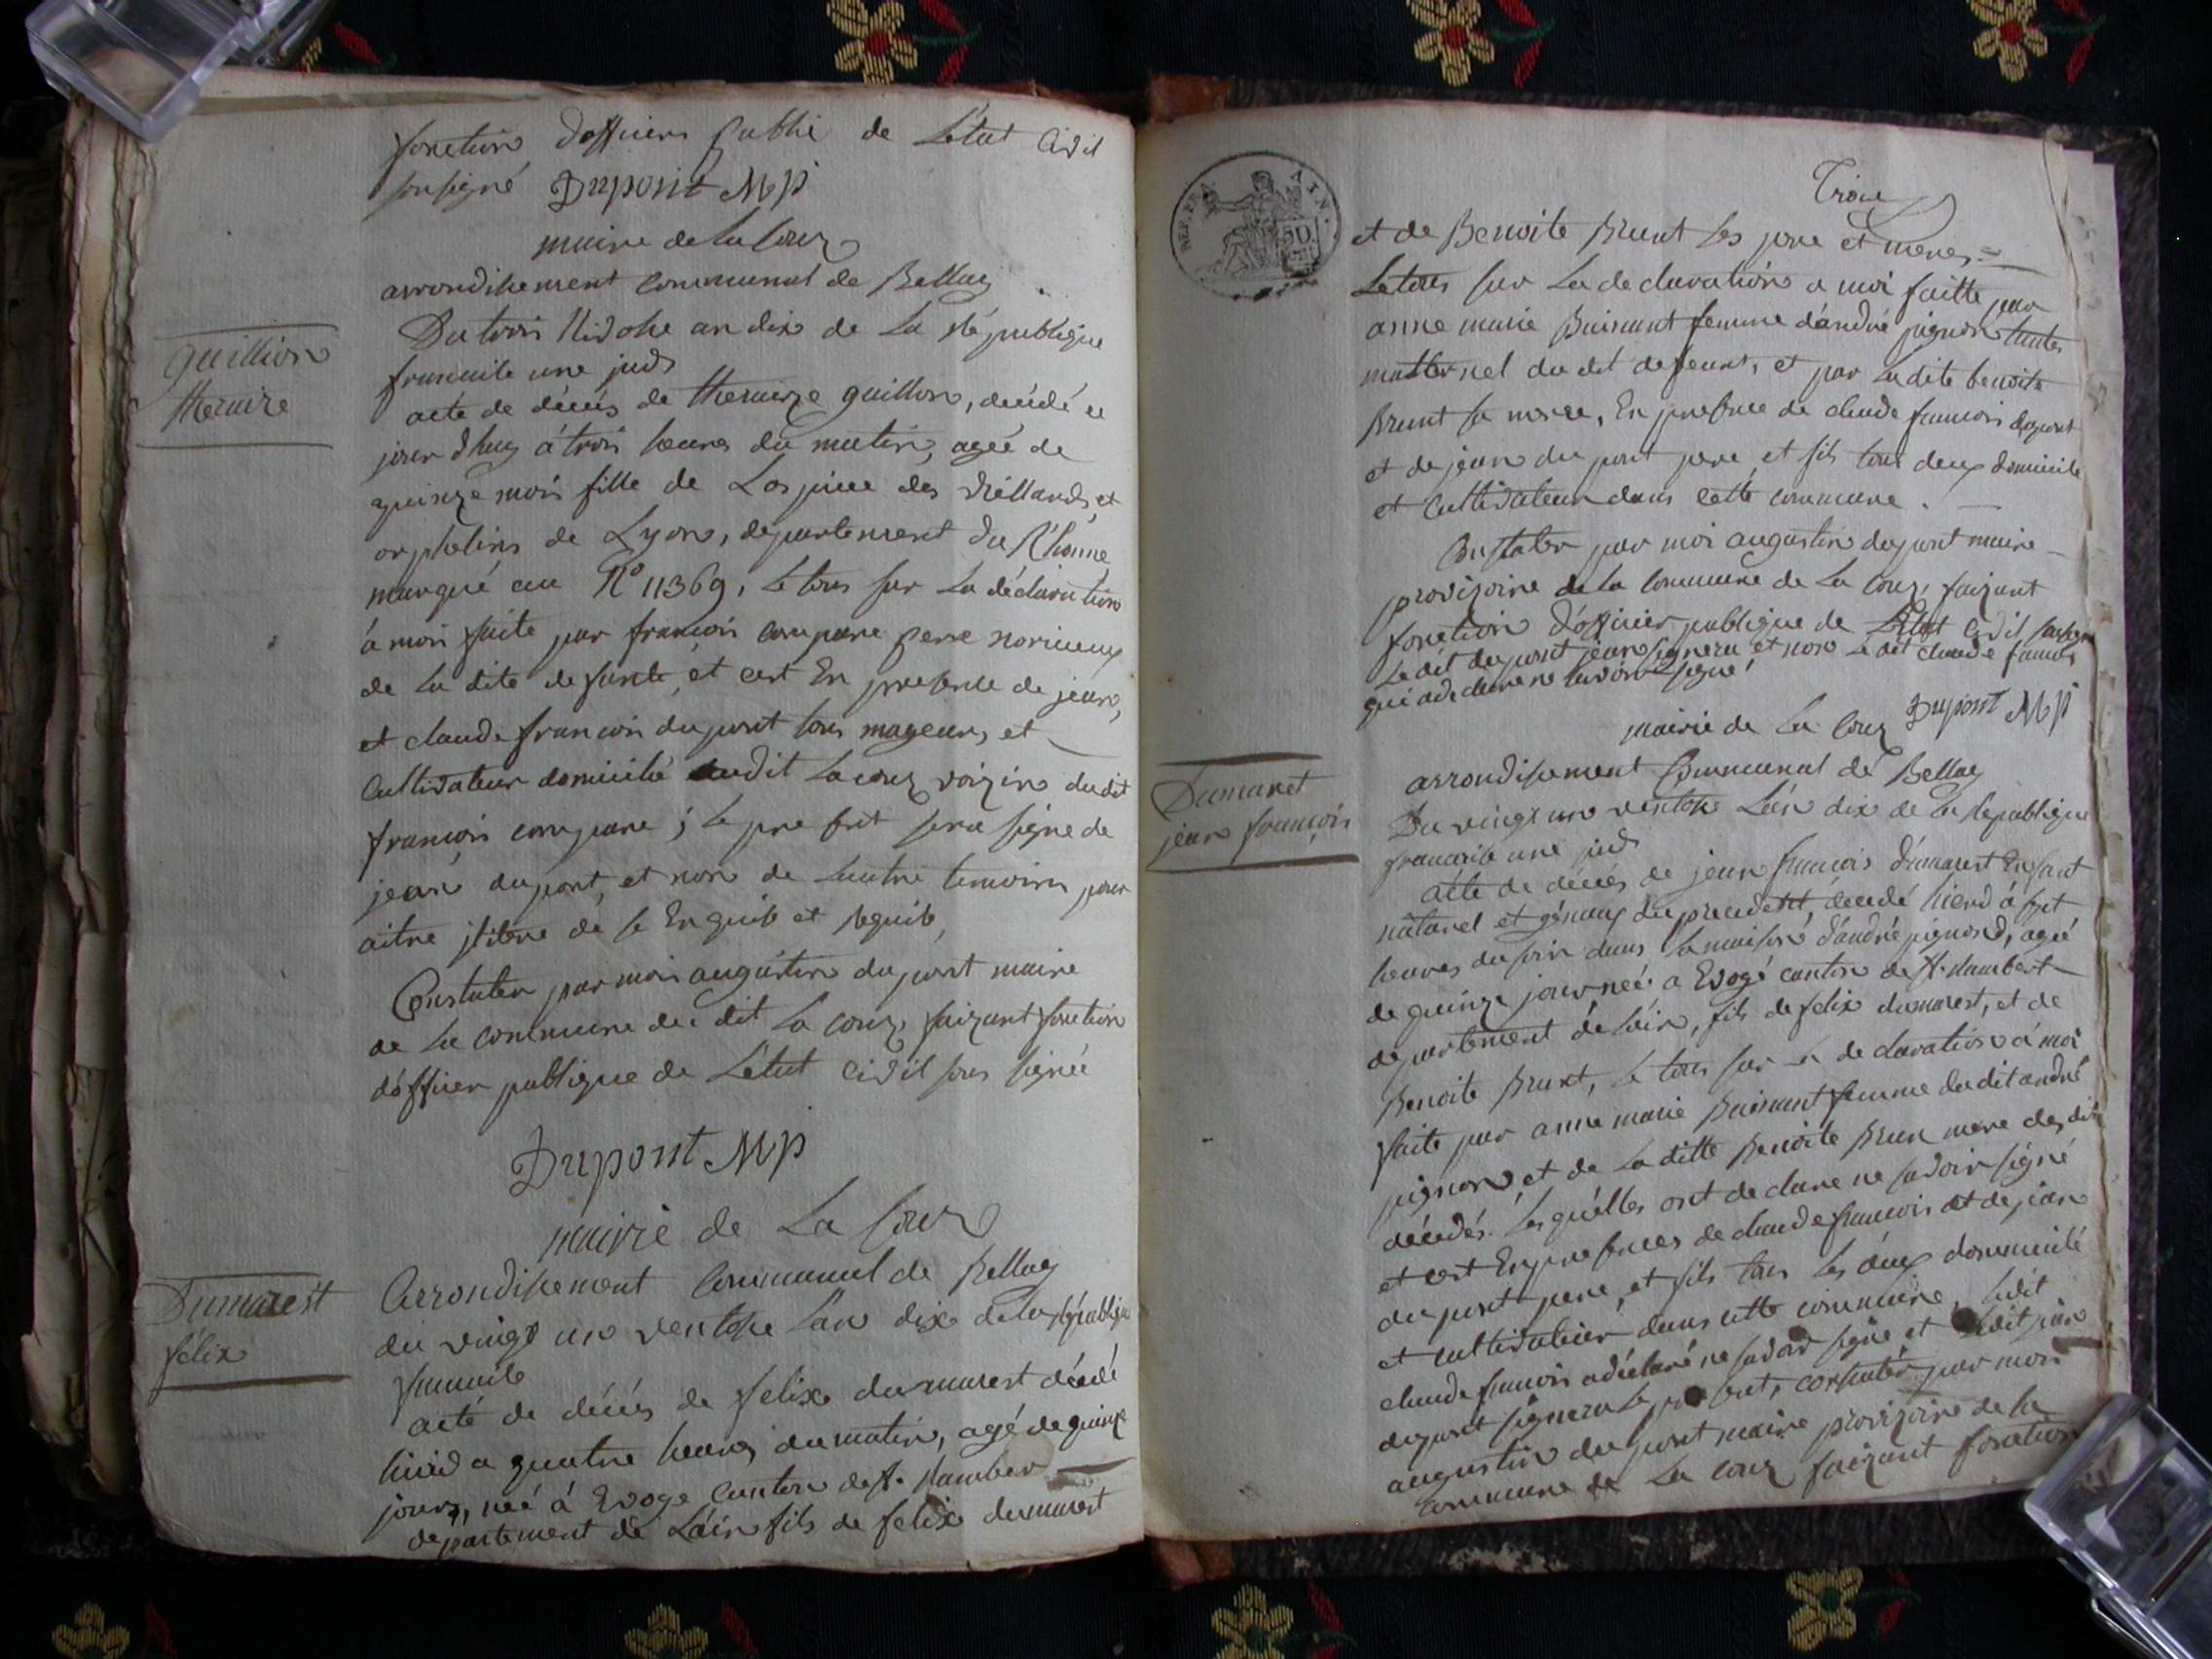 fonction d'officiers publié de L'état Civil
sousigné Dupont M p
mairie de la Couz
arrondisement communal de Bellay
guillion
theraize
Du trois Nivose an dix de La République
francaise une jnd
acte de décés de theraize guillion, décédé ce
jour d'huy á trois heures du matin, agée de
quinze mois fille de Lospice des viéllards et
orphelins de Lyon, departement du Rhonne
marqué au N° 11369, le tous sur La déclaration
á moi faite par francois compare perre noricieux
de la dite defunte, et cest En presence de jean,
et claude francois dupont tous mageurs, et
Cultivateur domicilié audit Lacouz voizin dudit
francois compare; le presret sera signé de
jean dupont, et non de Lautre temoins pour
aitre jlitere de ce Enquib et requib,
Constater par moi augustin dupont maire
de La commune de dit La couz, faizant fonction
d'officier publique de L'état Civil sous signée
Dupont M p
mairie de La Couz
Dumarest
félix
Arrondisement Communal de Bellay
du vingt un ventose L'an dix de la république
francaise
acté de décés de felix dumarest décédé
hierd a quatre heures du matin, agé de quinze
jours, néé á Evoge canton de st. Rambert
departement de L'ain fils de felix dumarest
Trois
et de Benoite Brunt ses pere et meres
Le tous sur La declaration a moi faitte par
anne marie Buinant femme d'andré pignon tantes
matternel du dit defeunt, et par Ladite benoite
Brunt sa merre, En presence de claude francois dupont
et de jean du pont pere et fils tous deux domicile
et Cultivateur dans cette commune.
Constater par moi augustin dupont maire
provizoire de la commune de La Couz, faizant
fonction d'officier publique de L'état Civil, sousigné
Le dit dupont jean signera et non Le dit claude francois
qui a declare ne savoir signé
Dupont M p
mairie de La Couz
Dumaret
jean françois
arrondisement Communal de Bellay
Du vingt un ventose L'an dix de la Republique
francaise une jnd
acte de décés de jean francois dumarest Enfant
naturel et gémaux du precedetit, decedé hierd á sept
heures du soir dans la maison d'andré pignond, agé
de quinze jour néé a Evogé canton de st. Rambert
departement de L'ain, fils de felix dumarest, et de
Benoite Brunt, le tous sur La declaration á moi
faite par anne marie Buinant femme du dit andré
pignon, et de La ditte Benoite Brun mere des dit
décédés. Les quélles ont declare ne savoir signé
et cest En presences de claude francois et de jean
du pont pere, et fils tous les deux domicilié
et cultivateur dans cette commune, ledit
claude francois a déclaré ne savoir signé et ledit jean
dupont signera le present, constater par moi
augustin du pont maire provizoire de la
Commune de La Couz faizant fonction